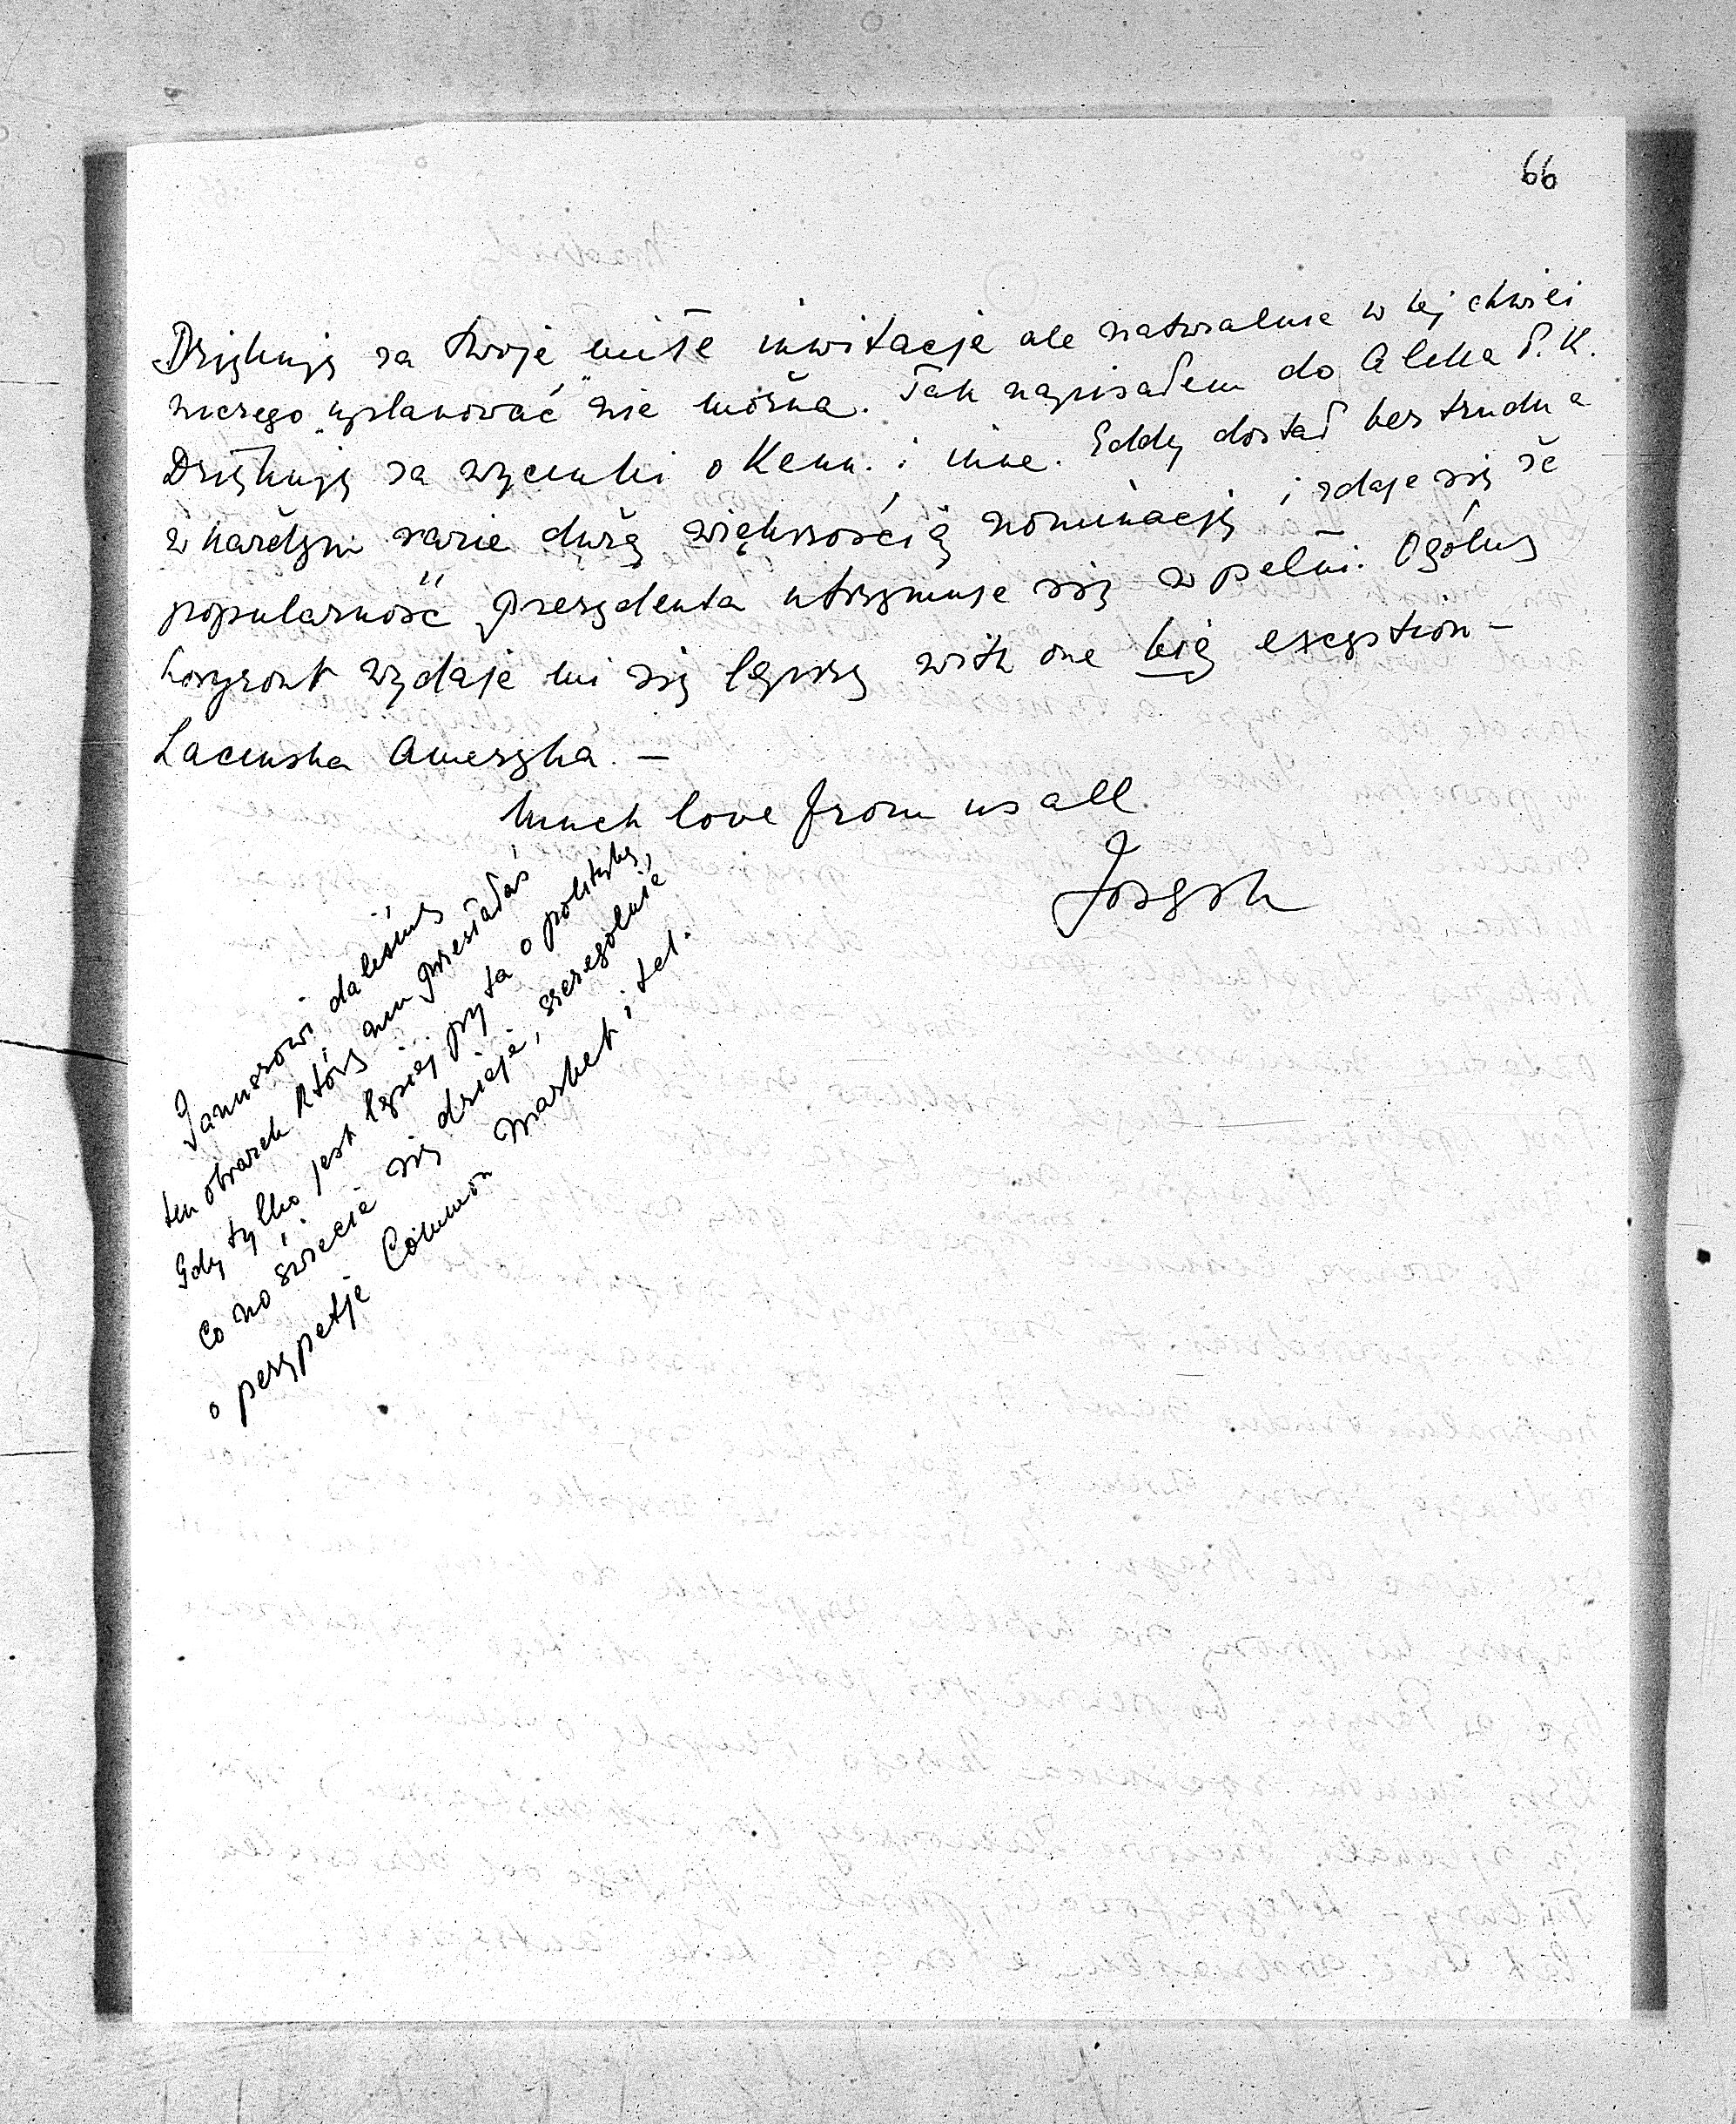 66
Dziękuję za twoje miłe inwitacje ale naturalnie w tej chwili
niczego "uplanować" nie można. Tak napisałem do Alika P.K.
Dziękuję za wycinki o Kenn. i inne. Eddy dostał bez trudu a
w każdym razie dużą większością nominację i zdaje się że
popularność prezydenta utrzymuje się w pełni. Ogólny
horyzont wydaje mi się lepszy with one big exception –
Lacinska Ameryka. –
Much love from us all.
Joseph
Januszowi daliśmy
ten obrazek który mu przesiadaś
Gdy tylko jest lepiej pyta o politykę,
co na świecie się dzieje, szczególnie
o perypetje Common Market i td.